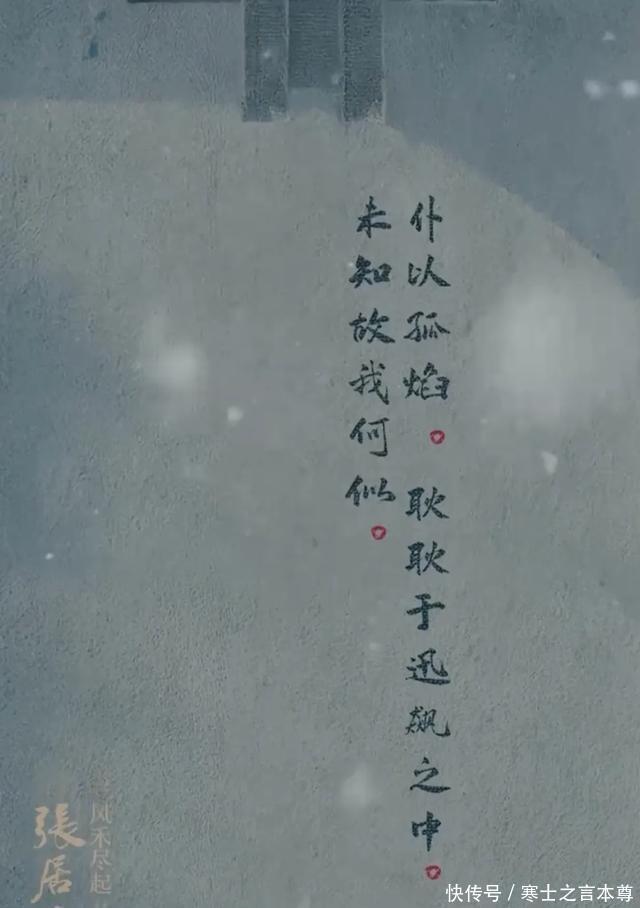 仆以孤焰。耿耿于迅飙之中。
未知故我何似。
风禾尽起
張居
快传号/寒士之言本尊